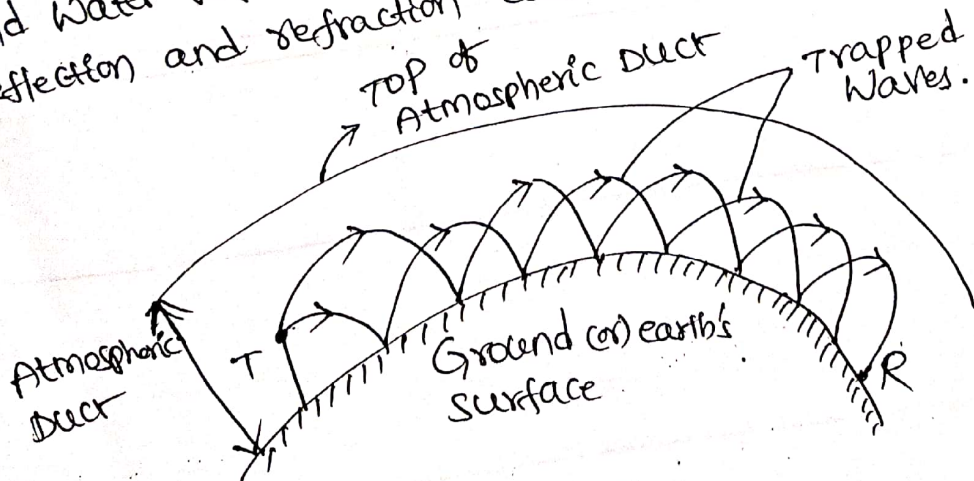 Water
reflection and refraction
TOP of
Atmospheric Duct
Trapped
Waves.
Atmospheric
Duct
T
Ground (or) earth's
surface
R